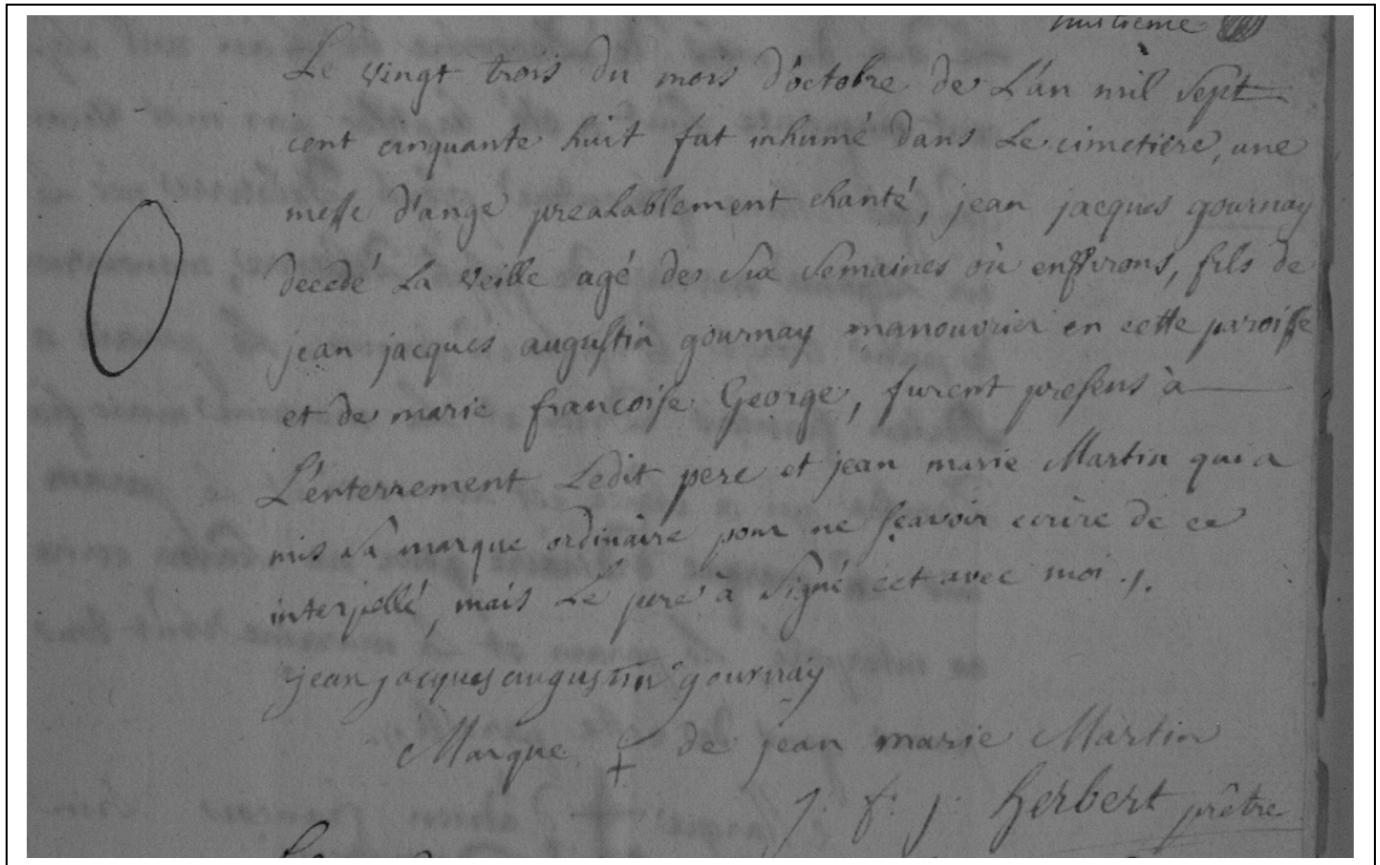 huitieme
Le vingt trois du mois d'octobre de L'an mil sept
cent cinquante huit fut inhumé dans Le cimetiere, une
messe d'ange prealablement chanté, jean jacques gournay
decedé La veille agé des six semaines où environs, fils de
jean jacques augustin gournay manouvrier en cette paroisse
et de marie francoise George, furent presens à
L'enterrement Ledit pere et jean marie Martin qui a
mis sa marque ordinaire pour ne sçavoir ecrire de ce
interpellé, mais Le pere à signé cet avec moi ./.
jean jacques augustin gournay
Marque de jean marie Martin
j. f. j. Herbert prêtre